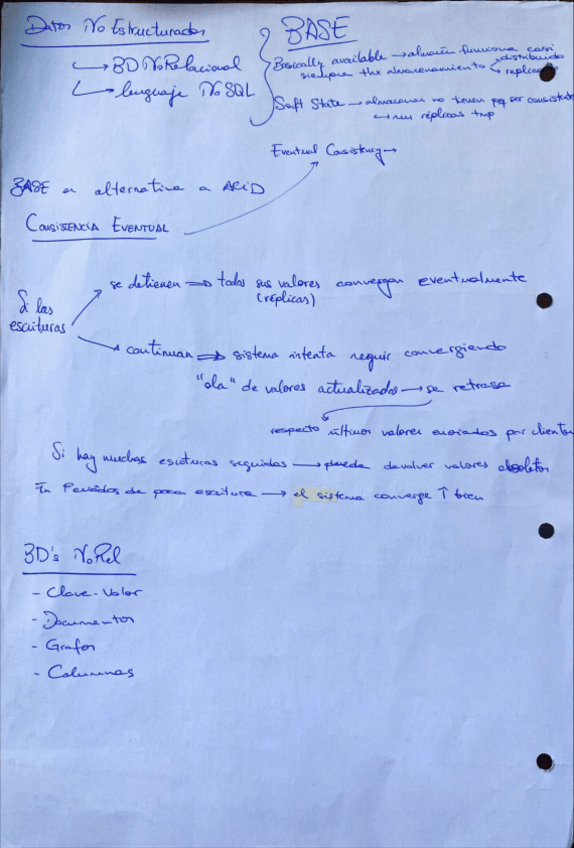 Datos No Estructurados
↳ BD No Relacional
↳ lenguaje NoSQL
BASE
Basically available → almacén funciona casi
siempre thx almacenamiento distribuido
replicado
Soft State → almacenes no tienen pq ser consistente
↳ sus réplicas tmp
Eventual Consistency →
BASE en alternativa a ACID
CONSISTENCIA EVENTUAL
Si las escrituras
se detienen ⇒ todos sus valores convergen eventualmente
(réplicas)
continuan ⇒ sistema intenta seguir convergiendo
"ola" de valores actualizados → se retrasa
respecto últimos valores enviados por clientes
Si hay muchas escrituras seguidas → puede devolver valores obsoletos
En Periodos de poca escritura → el sistema converge ↑ bien
BD's NoRel
- Clave-Valor
- Documentos
- Grafos
- Columnas